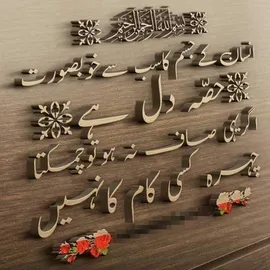 بسم اللہ الرحمن الرحیم
انسان کے جسم کا سب سے خوبصورت
حصہ دل ہے
اگر یہی صاف نہ ہو تو چمکتا
چہرہ کسی کام کا نہیں